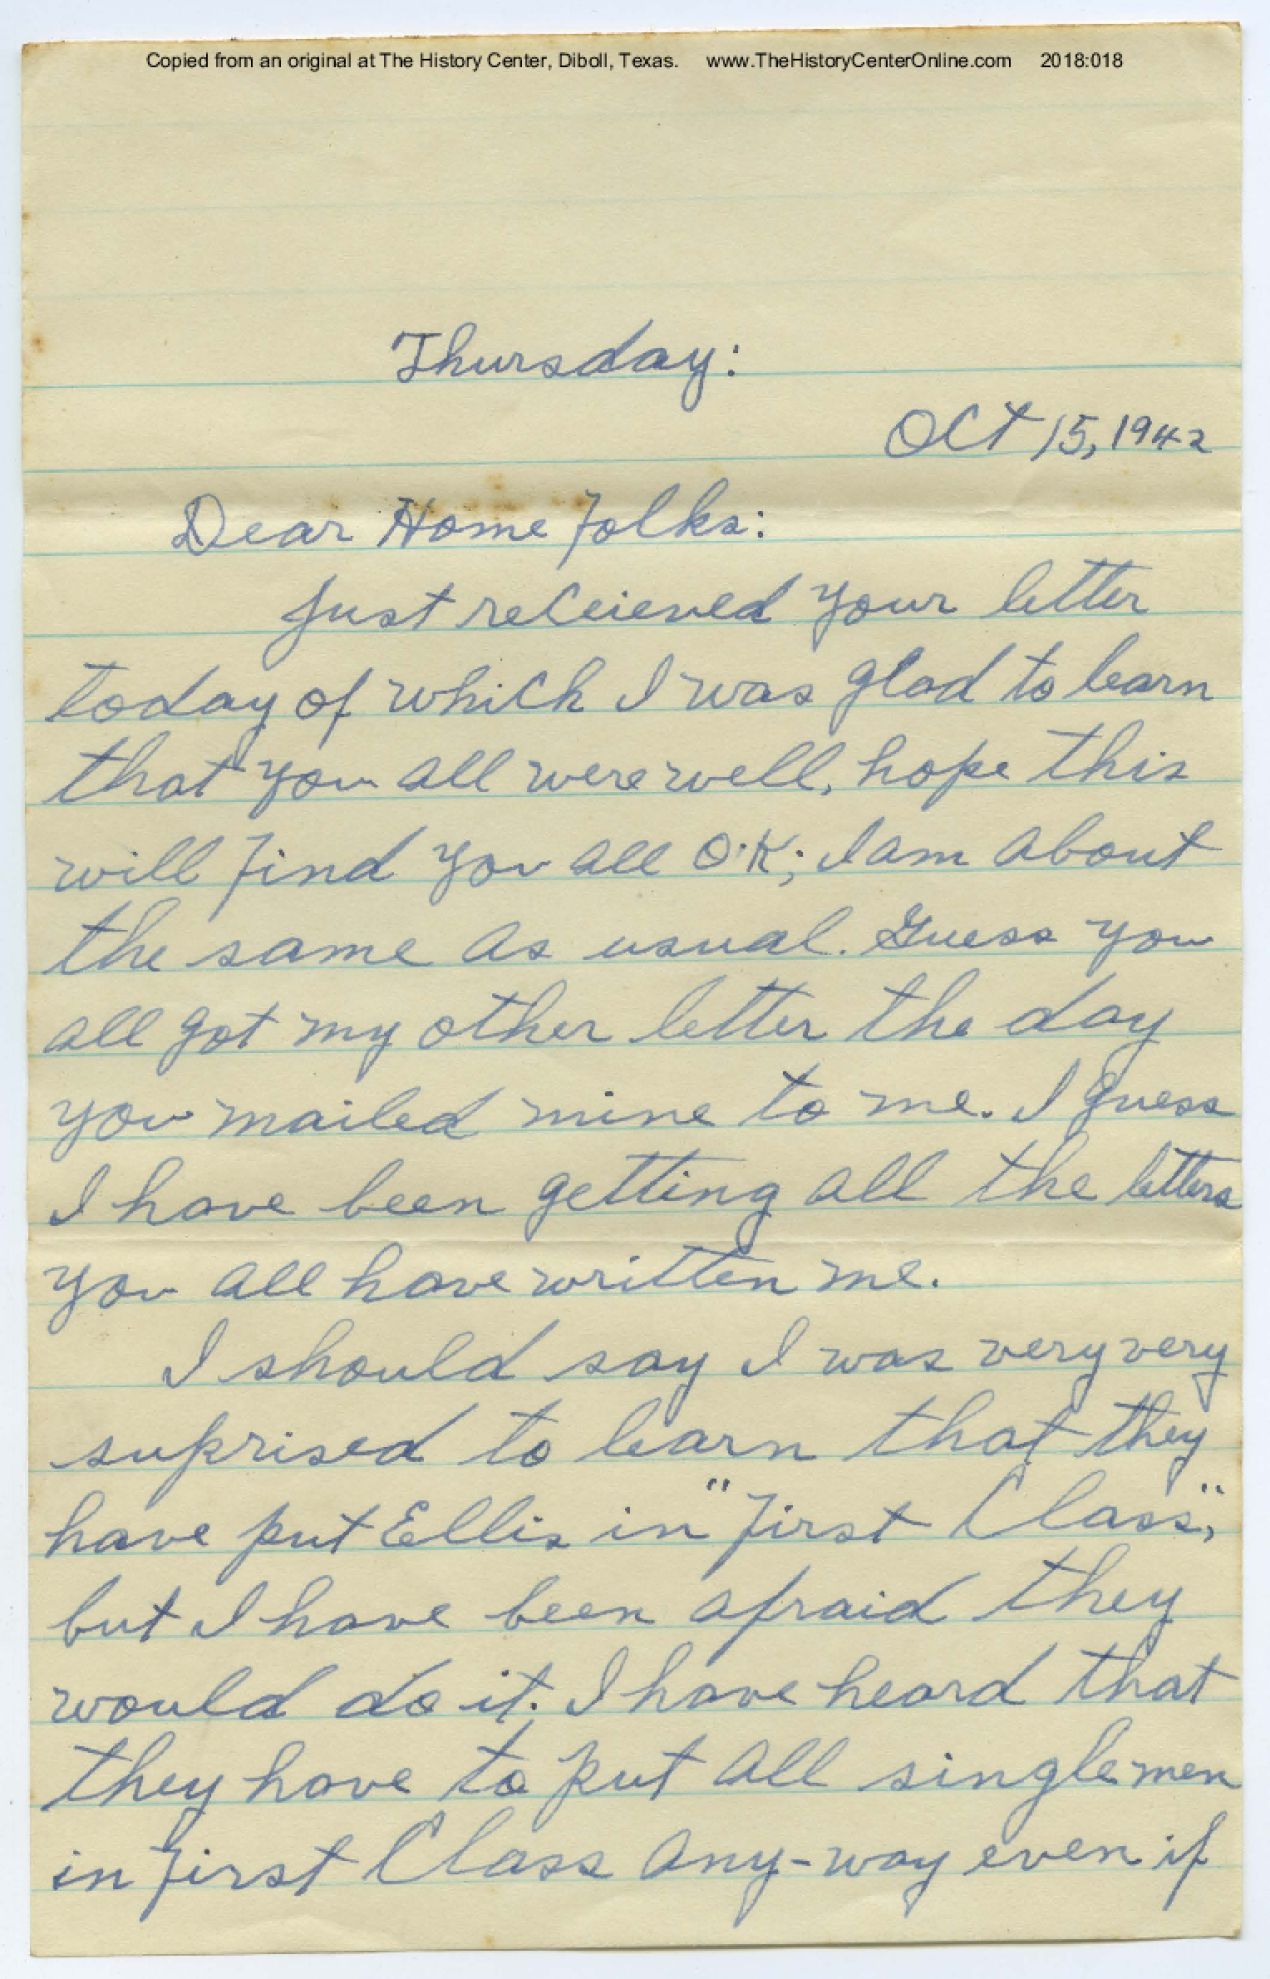 Copied from an original at The History Center, Diboll, Texas. www.TheHistoryCenterOnline.com 2018:018
Thursday:
Oct 15, 1942
Dear Home folks:
Just receieved your letter
today of which I was glad to learn
that you all were well, hope this
will find you all O.K; I am about
the same as usual. Guess you
all got my other letter the day
you mailed mine to me. I guess
I have been getting all the letters
you all have written me.
I should say I was very very
suprised to learn that they
have put Ellis in "first Class",
but I have been afraid they
would do it. I have heard that
they have to put all single men
in first Class any-way even if